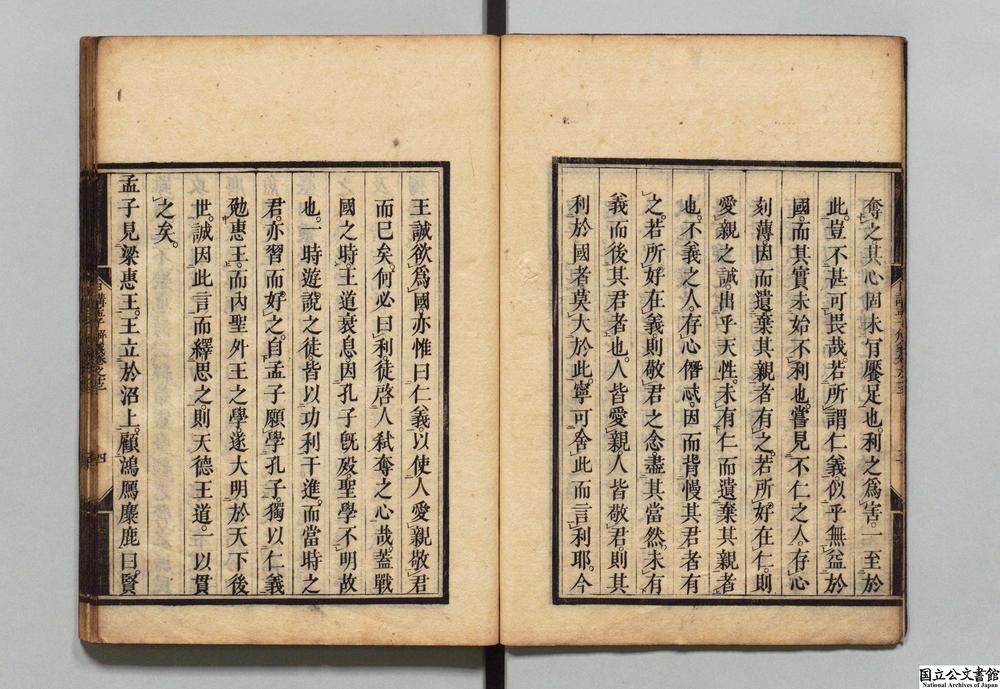 奪之其心固未肯饜足也。利之爲害。一至於
此。豈不甚可畏哉。若所謂仁義。似乎無益於
國。而其實未始不利也。嘗見不仁之人。存心
刻薄。因而遺棄其親者有之。若所好在仁。則
愛親之誠。出乎天性。未有仁而遺棄其親者
也。不義之人。存心僭忒。因而背慢其君者有
之。若所好在義。則敬君之念。盡其當然。未有
義而後其君者也。人皆愛親。人皆敬君。則其
利於國者。莫大於此。寧可舍此而言利耶。今
王誠欲爲國。亦惟曰仁義。以使人愛親敬君
而已矣。何必曰利。徒啓人弒奪之心哉。蓋戰
國之時。王道衰息。因孔子旣歿。聖學不明故
也。一時遊說之徒。皆以功利干進。而當時之
君。亦習而好之。自孟子願學孔子。獨以仁義
勉惠王。而內聖外王之學。遂大明於天下後
世。誠因此言而繹思之。則天德王道。一以貫
之矣。
孟子見梁惠王。王立於沼上。顧鴻鴈麋鹿曰。賢
四
国立公文書館
National Archives of Japan